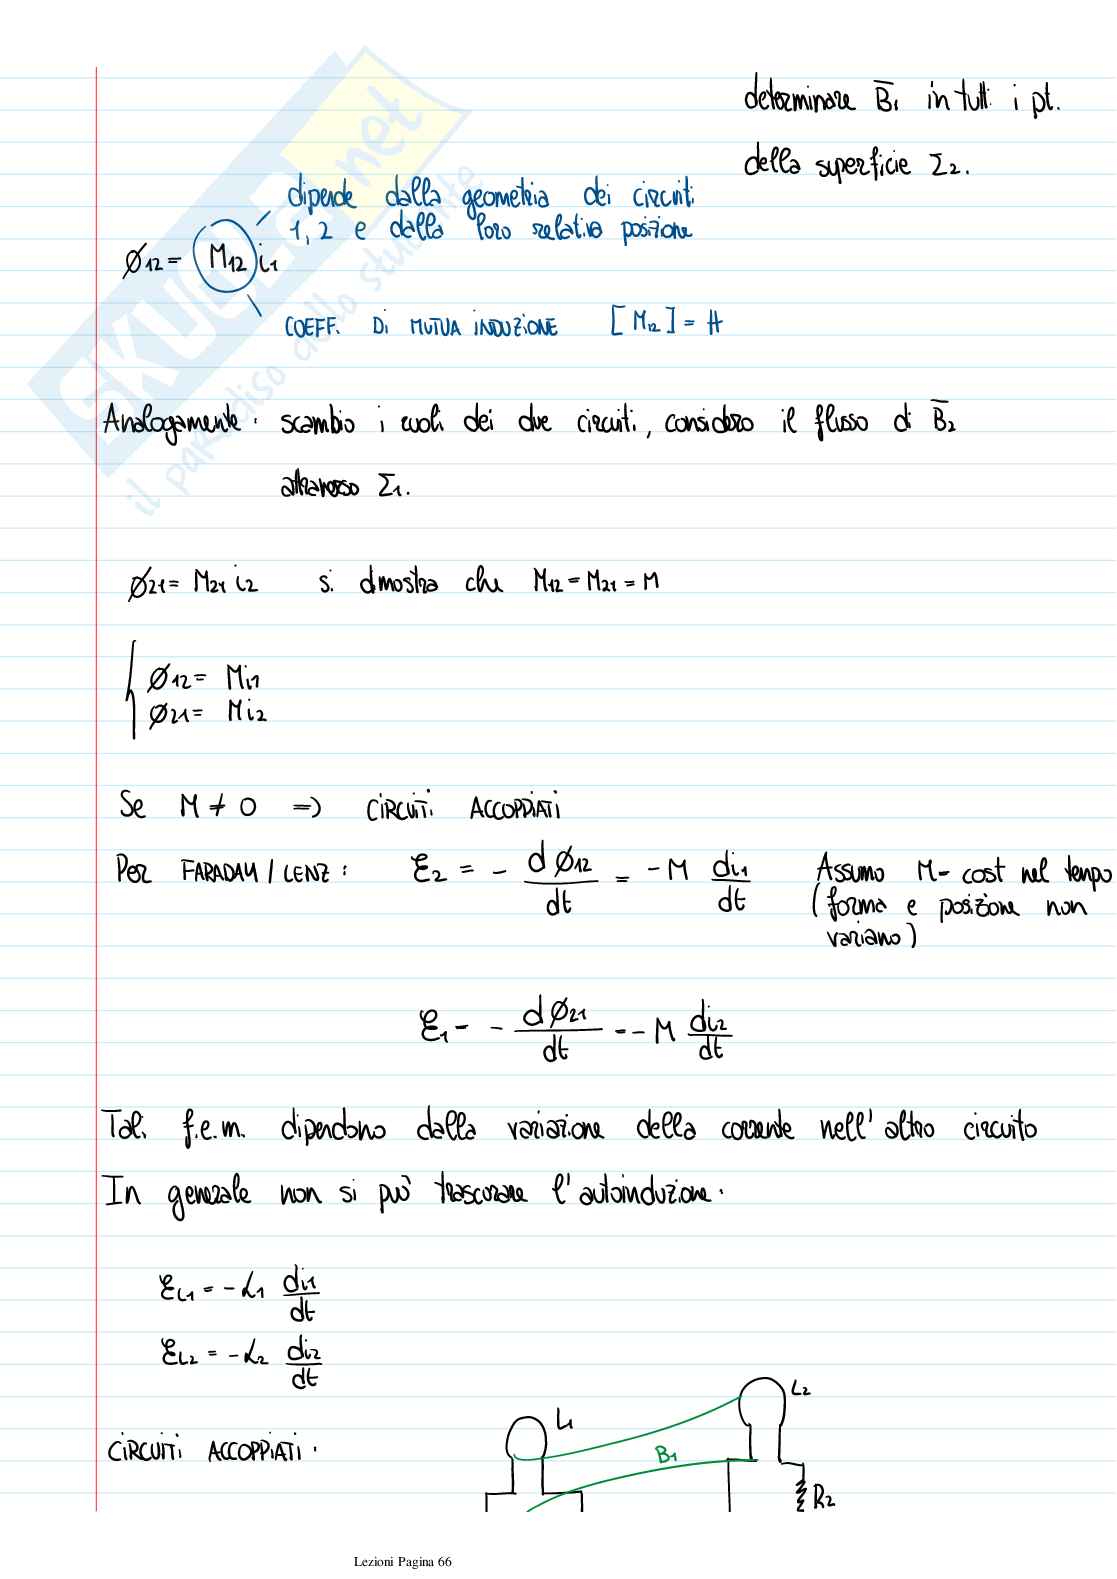 determinare B̅₁ in tutti i pt.
della superficie Σ₂.
dipende dalla geometria dei circuiti
1, 2 e dalla loro relativa posizione
Ø₁₂ = M₁₂ i₁
COEFF. Di MUTUA iNDUZiONE [M₁₂] = H
Analogamente: scambio i ruoli dei due circuiti, considero il flusso di B̅₂
attraverso Σ₁.
Ø₂₁ = M₂₁ i₂ si dimostra che M₁₂ = M₂₁ = M
Ø₁₂ = Mi₁
Ø₂₁ = Mi₂
Se M ≠ 0 => CiRCUiTi ACCOPPiATi
Per FARADAY / LENZ: Ɛ₂ = - dØ₁₂/dt = - M di₁/dt Assumo M = cost nel tempo
(forma e posizione non
variano)
Ɛ₁ = - dØ₂₁/dt = - M di₂/dt
Tali f.e.m. dipendono dalla variazione della corrente nell'altro circuito
In generale non si può trascurare l'autoinduzione.
ƐL₁ = - L₁ di₁/dt
ƐL₂ = - L₂ di₂/dt
CiRCUiTi ACCOPPiATi:
L₁
B₁
L₂
R₂
SKUOLA.net
il paradiso dello studente
Lezioni Pagina 66